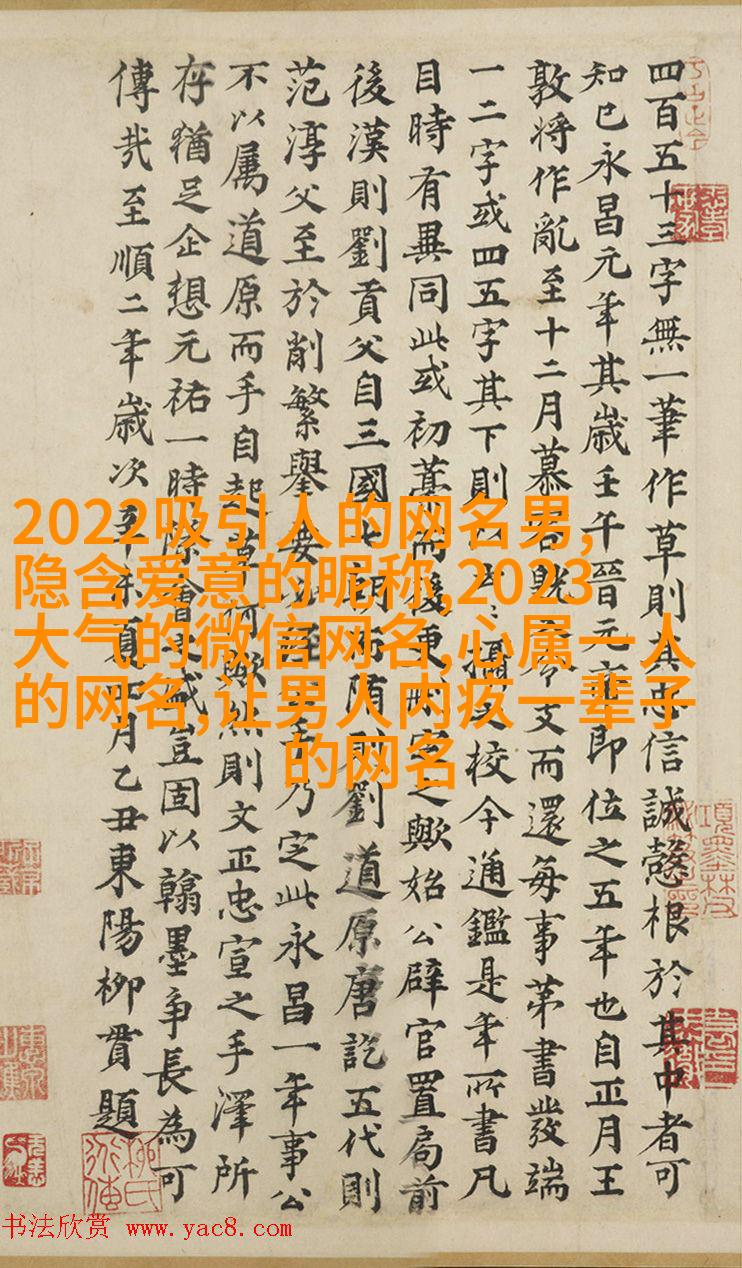 四百五十三字無一筆作草則其忠信誠慤根於其中者可
知已永昌元年其歲壬午晉元帝即位之五年也自正月王
敦將作亂至十二月慕容 令支而還每事第書發端
一二字或四五字其下則以 攝之校今通鑑是年所書凡
目時有異同此或初藁而後更刪定之歟始公辟官置局前
後漢則劉貢父自三國七朝而隋則劉道原唐訖五代則
范淳父至於削繁舉要必經公手乃定此永昌一年事公
不以屬道原而手自起草何歟然則文正忠宣之手澤所
存猶足企想元祐一時際會之盛豈固以翰墨爭長為可
傳哉至順二年歲次辛未夏 月乙丑東陽柳貫題
2022吸引人的网名男,
隐含爱意的昵称,2023
大气的微信网名,心属一人
的网名,让男人内疚一辈子
的网名
书法欣赏 www.yac8.com